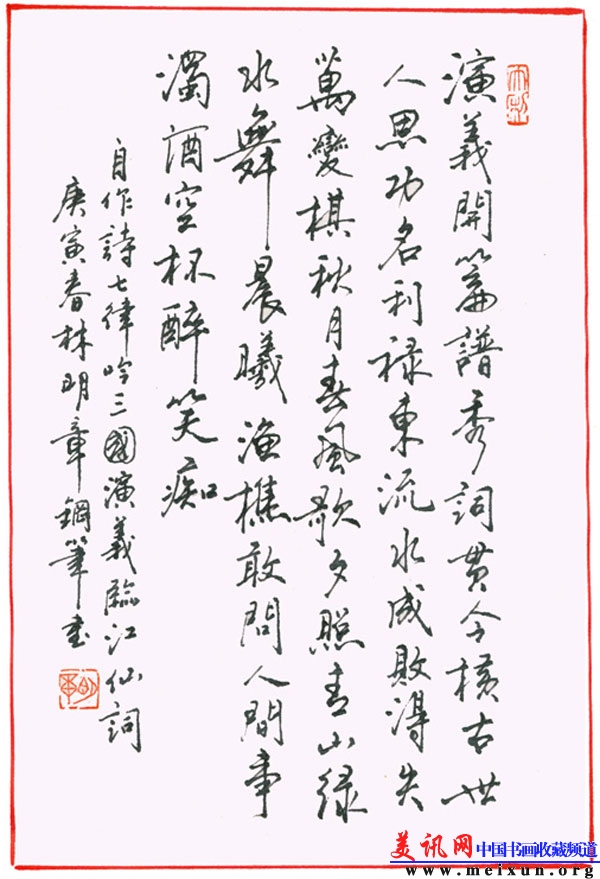 演義開篇譜秀詞貫今横古世
人思功名利禄東流水成敗得失
萬變棋秋月春風歌夕照青山绿
水舞晨曦漁樵敢問人間事
濁酒空杯醉笑痴
自作詩七律吟三國演義臨江仙詞
庚寅春林明章鋼筆書
美讯网 中国书画收藏频道
www.meixun.org